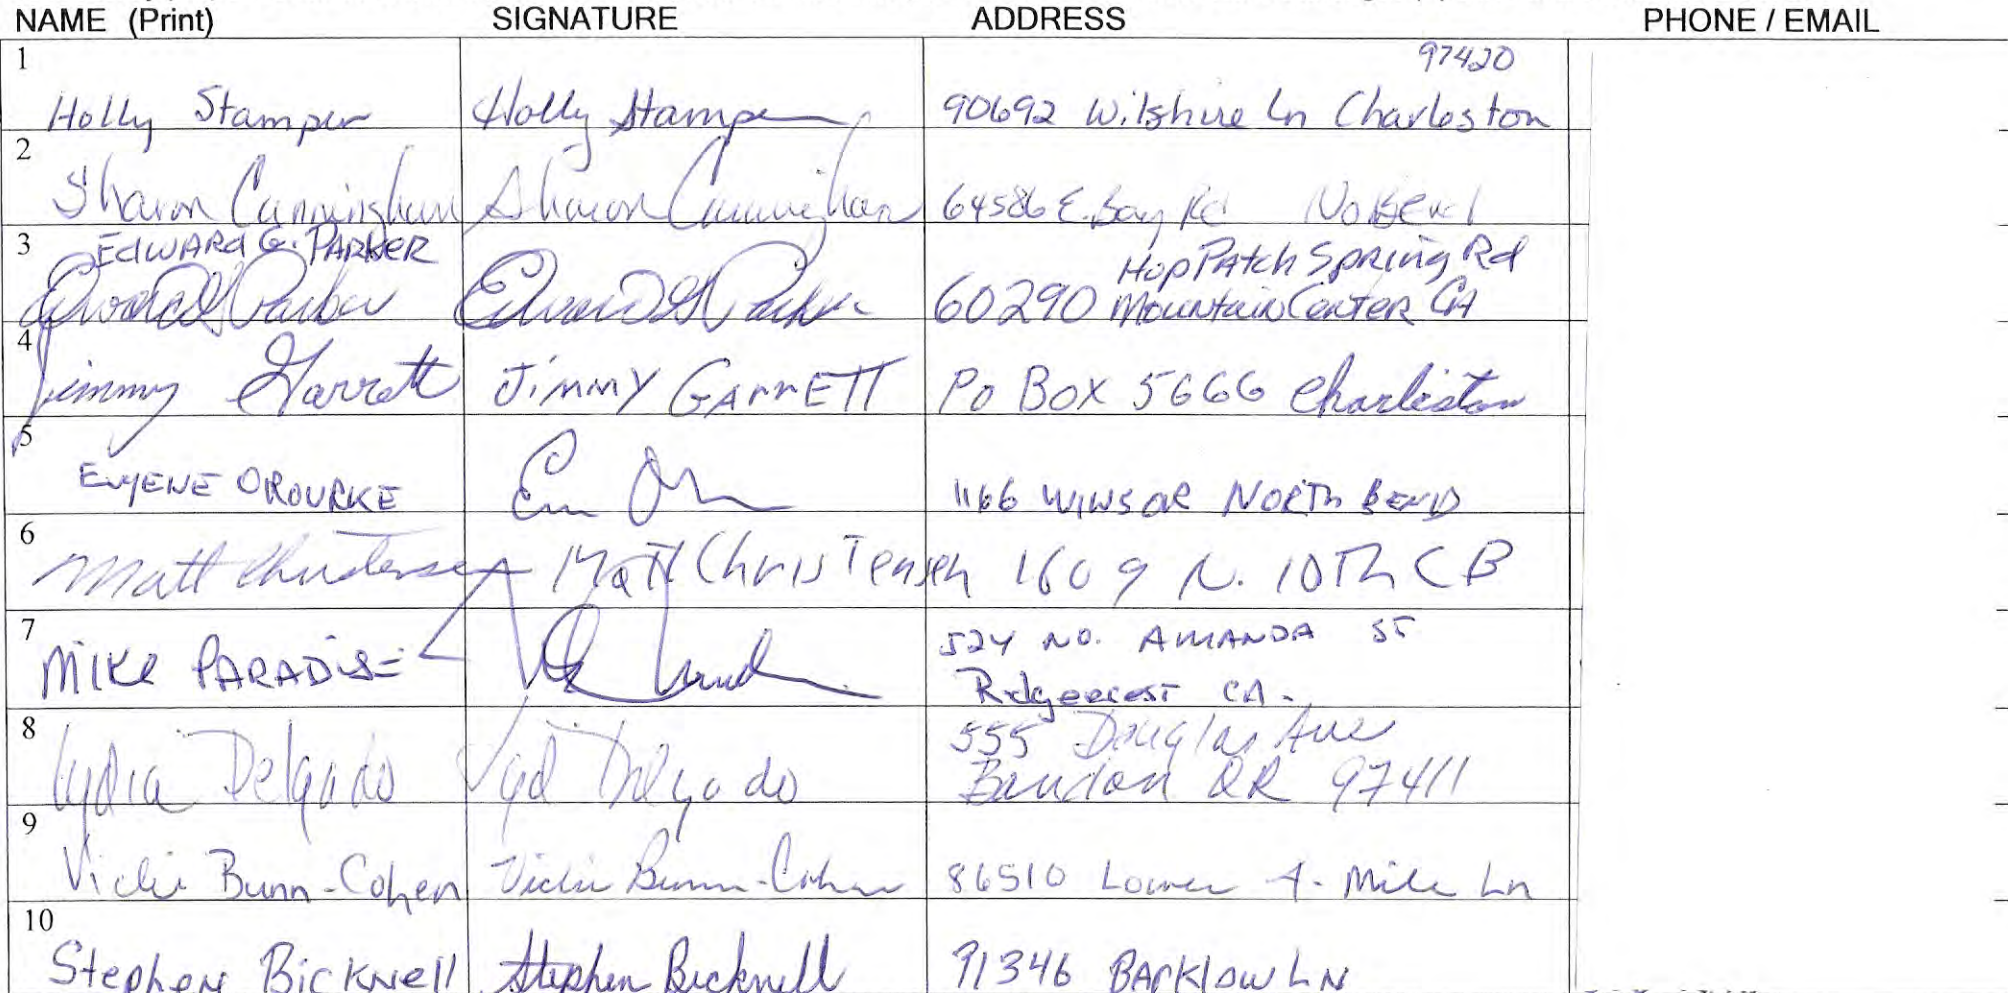 NAME (Print) SIGNATURE ADDRESS PHONE / EMAIL
1 97420
Holly Stamper Holly Stamper 90692 Wilshire Ln Charleston
2
Sharon Cunningham Sharon Cunningham 64586 E. Bay Rd No Bend
3 EdWARd G. PARKER Hop PAtch Spring Rd
Edward G Parker Edward G Parker 60290 Mountain Center CA
4
Jimmy Garrett JiMMY GArrETT Po BOX 5666 Charleston
5
EUGENE OROURKE 1166 WINSOR NORTh BEND
6
Matt Christensen Matt Christensen 1609 N. 10Th CB
7 524 NO. AMANDA ST
MIKE PARADISE Ridgecrest CA.
8 555 Douglas Ave
Lydia Delgado Delgado Bandon OR 97411
9
Vicki Bunn-Cohen Vicki Bunn-Cohen 86510 Lower 4-Mile Ln
10
Stephen Bicknell Stephen Bicknell 91346 BARKlOW LN